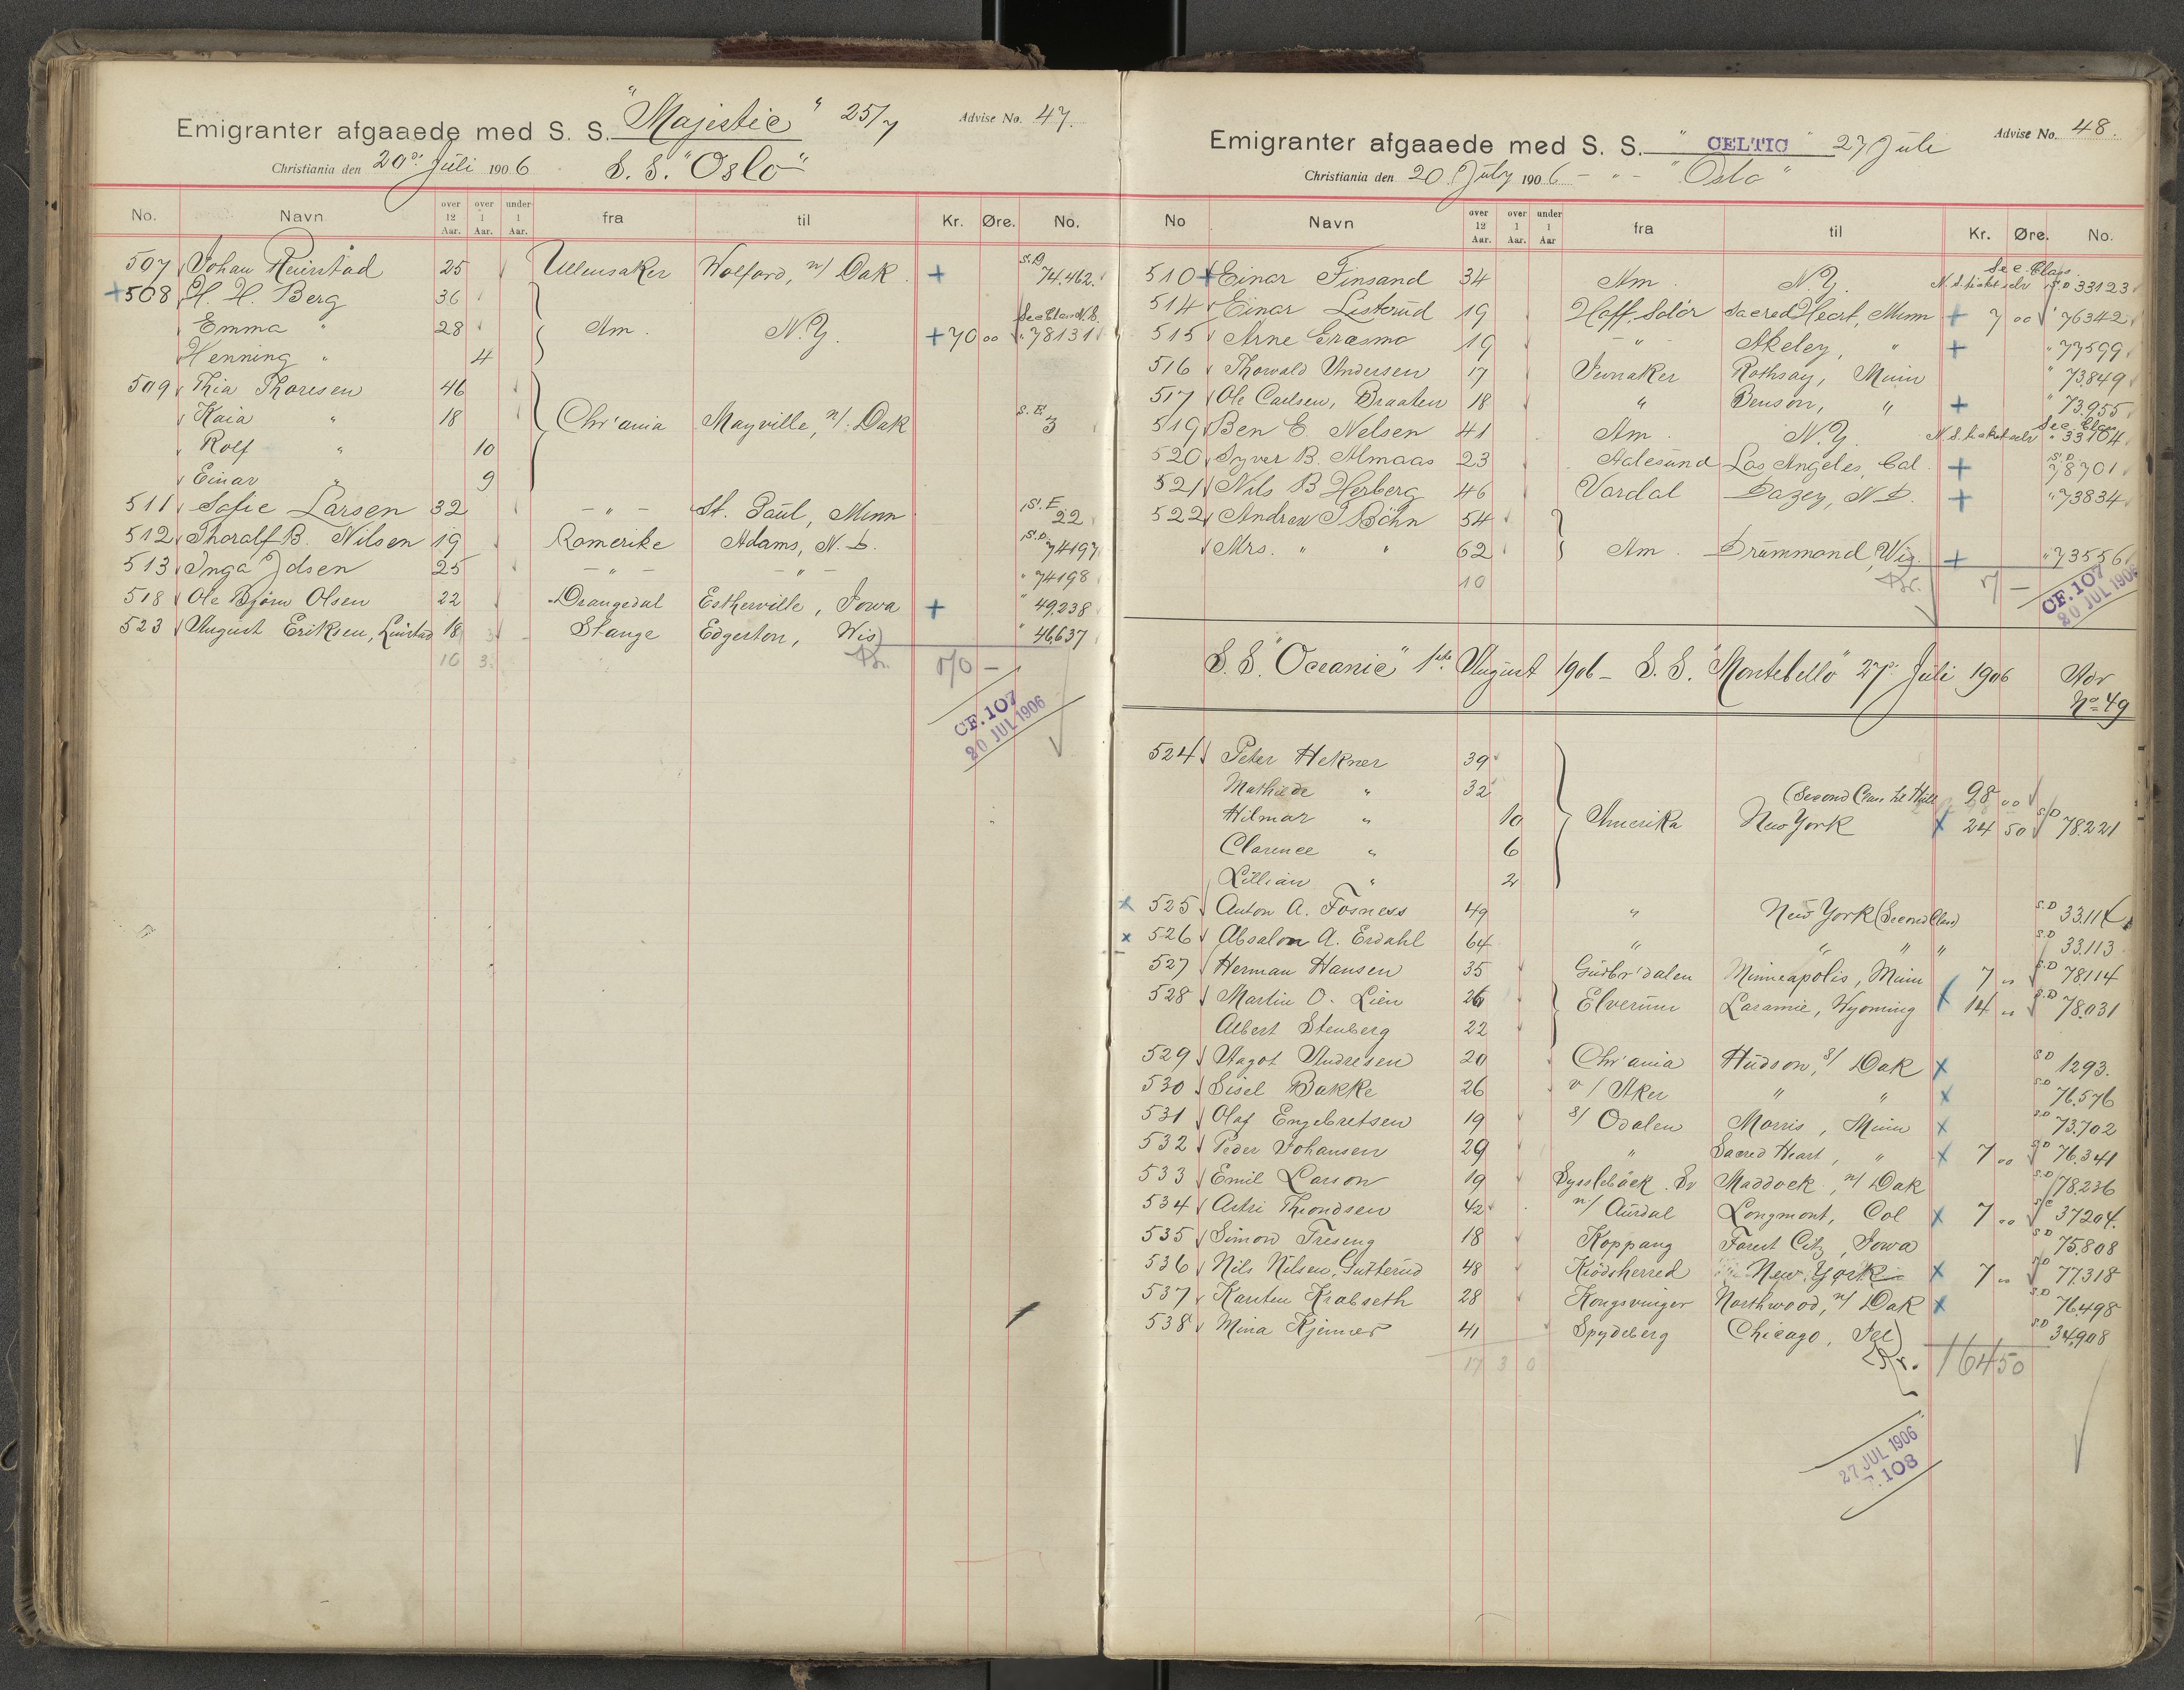 Emigranter afgaaede med S. S. "Majestic" 25/7 Advise No. 47.
Christiania den 20de Juli 1906 S. S. "Oslo"
No. Navn over 12 Aar. over 1 Aar. under 1 Aar. fra til Kr. Øre. No.
507 Johan Reierstad 25 Ullensaker Wolford, N/ Dak. + S.D. 74.462.
+508 H. H. Berg 36
Emma " 28 Am. N.Y. +70 00 Sec Class N.S. " 78131
Henning " 4
509 Thia Thoresen 46
Kaia " 18 Chr'ania Mayville, N/. Dak S.E. 3
Rolf " 10
Einar " 9
511 Sofie Larsen 32 - " - St. Paul, Minn S.E 22
512 Thoralf B. Nilsen 19 Romerike Adams, N. D. S.D. 74197
513 Inga Idsen 25 - " - - " - " 74198
518 Ole Bjørn Olsen 22 Drangedal Estherville, Iowa + " 49.238
523 August Eriksen, 18 Stange Edgerton, Wis " 46637
10 3. Kr. 70 -
CF. 107
20 JUL 1906
Emigranter afgaaede med S. S. " CELTIC " 27 Juli Advise No. 48.
Christiania den 20 July 1906 - " - "Oslo"
No Navn over 12 Aar. over 1 Aar. under 1 Aar fra til Kr. Øre. No.
510 + Einar Finsand 34 Am. N.Y. Sec. Class. S.D 33123
514 Einar Listerud 19 Hoff, Solør Sacred Heart, Minn + 7 00 " 76342
515 Arne Græsmo 19 - " - Akeley, " + " 77599
516 Thorvald Andersen 17 Jevnaker Rothsay, Minn " 73.849
517 Ole Carlsen, Braaten 18 " Benson, " + " 73.955
519 Ben E. Nelsen 41 Am. N.Y. Sec. Class " 33104
520 Syver B. Almaas 23 Aalesund Los Angeles, Cal. + S.D. 78701
521 Nils B Herberg 46 Vardal Dazey, N D. + " 73834
522 Andrew J Böhn 54
Mrs. " " 62 Am. Drummond, Wis. + " 73556
10 Kr. 7 -
CF. 107
20 JUL 1906
S. S. "Oceanic" 1ste August 1906 - S. S. "Montebello" 27de Juli 1906 Adv
No 49
524 Peter Hekner 39
Mathilde " 32 (Second Class til Hull 98 00
Hilmar " 10 Amerika New York X 24 50 S/D 78.221
Clarence " 6
Lillian " 2
X 525 Anton A. Fosness 49 " New York (Second Class) S.D 33.114
x 526 Absalon A. Erdahl 64 " " " " S.D 33.113
527 Herman Hansen 35 Gudbr'dalen Minneapolis, Minn 7 00 S.D 78.114
528 Martin O. Lien 26 Elverum Laramie, Wyoming X 14 00 S.D 78.031
Albert Stenberg 22
529 Aagot Andresen 20 Chr'ania Hudson, S/ Dak X S.D 1293.
530 Sisel Bakke 26 v/ Aker " " X S.D 76.576
531 Olaf Engebretsen 19 S/ Odalen Morris, Minn X S.D 73.702
532 Peder Johansen 29 " Sacred Heart, " X 7 00 S.D 76.341
533 Emil Larson 19 Sysslebäck. Sv Maddock, N/ Dak S.D 78.236
534 Astri Throndsen 42 N/ Aurdal Longmont, Col X 7 00 S/C 37204.
535 Simon Treseng 18 Koppang Forest City, Iowa S.D 75.808
536 Nils Nilsen, Gutterud 48 Krödsherred New York X 7 00 S.D 77.318
537 Karsten Krabseth 28 Kongsvinger Northwood, N/ Dak X S.D 76.498
538 Mina Kjenner 41 Spydeberg Chicago, Ill S.D 34.908
17 3 0 Kr. 164 50
27 JUL 1906
F. 108